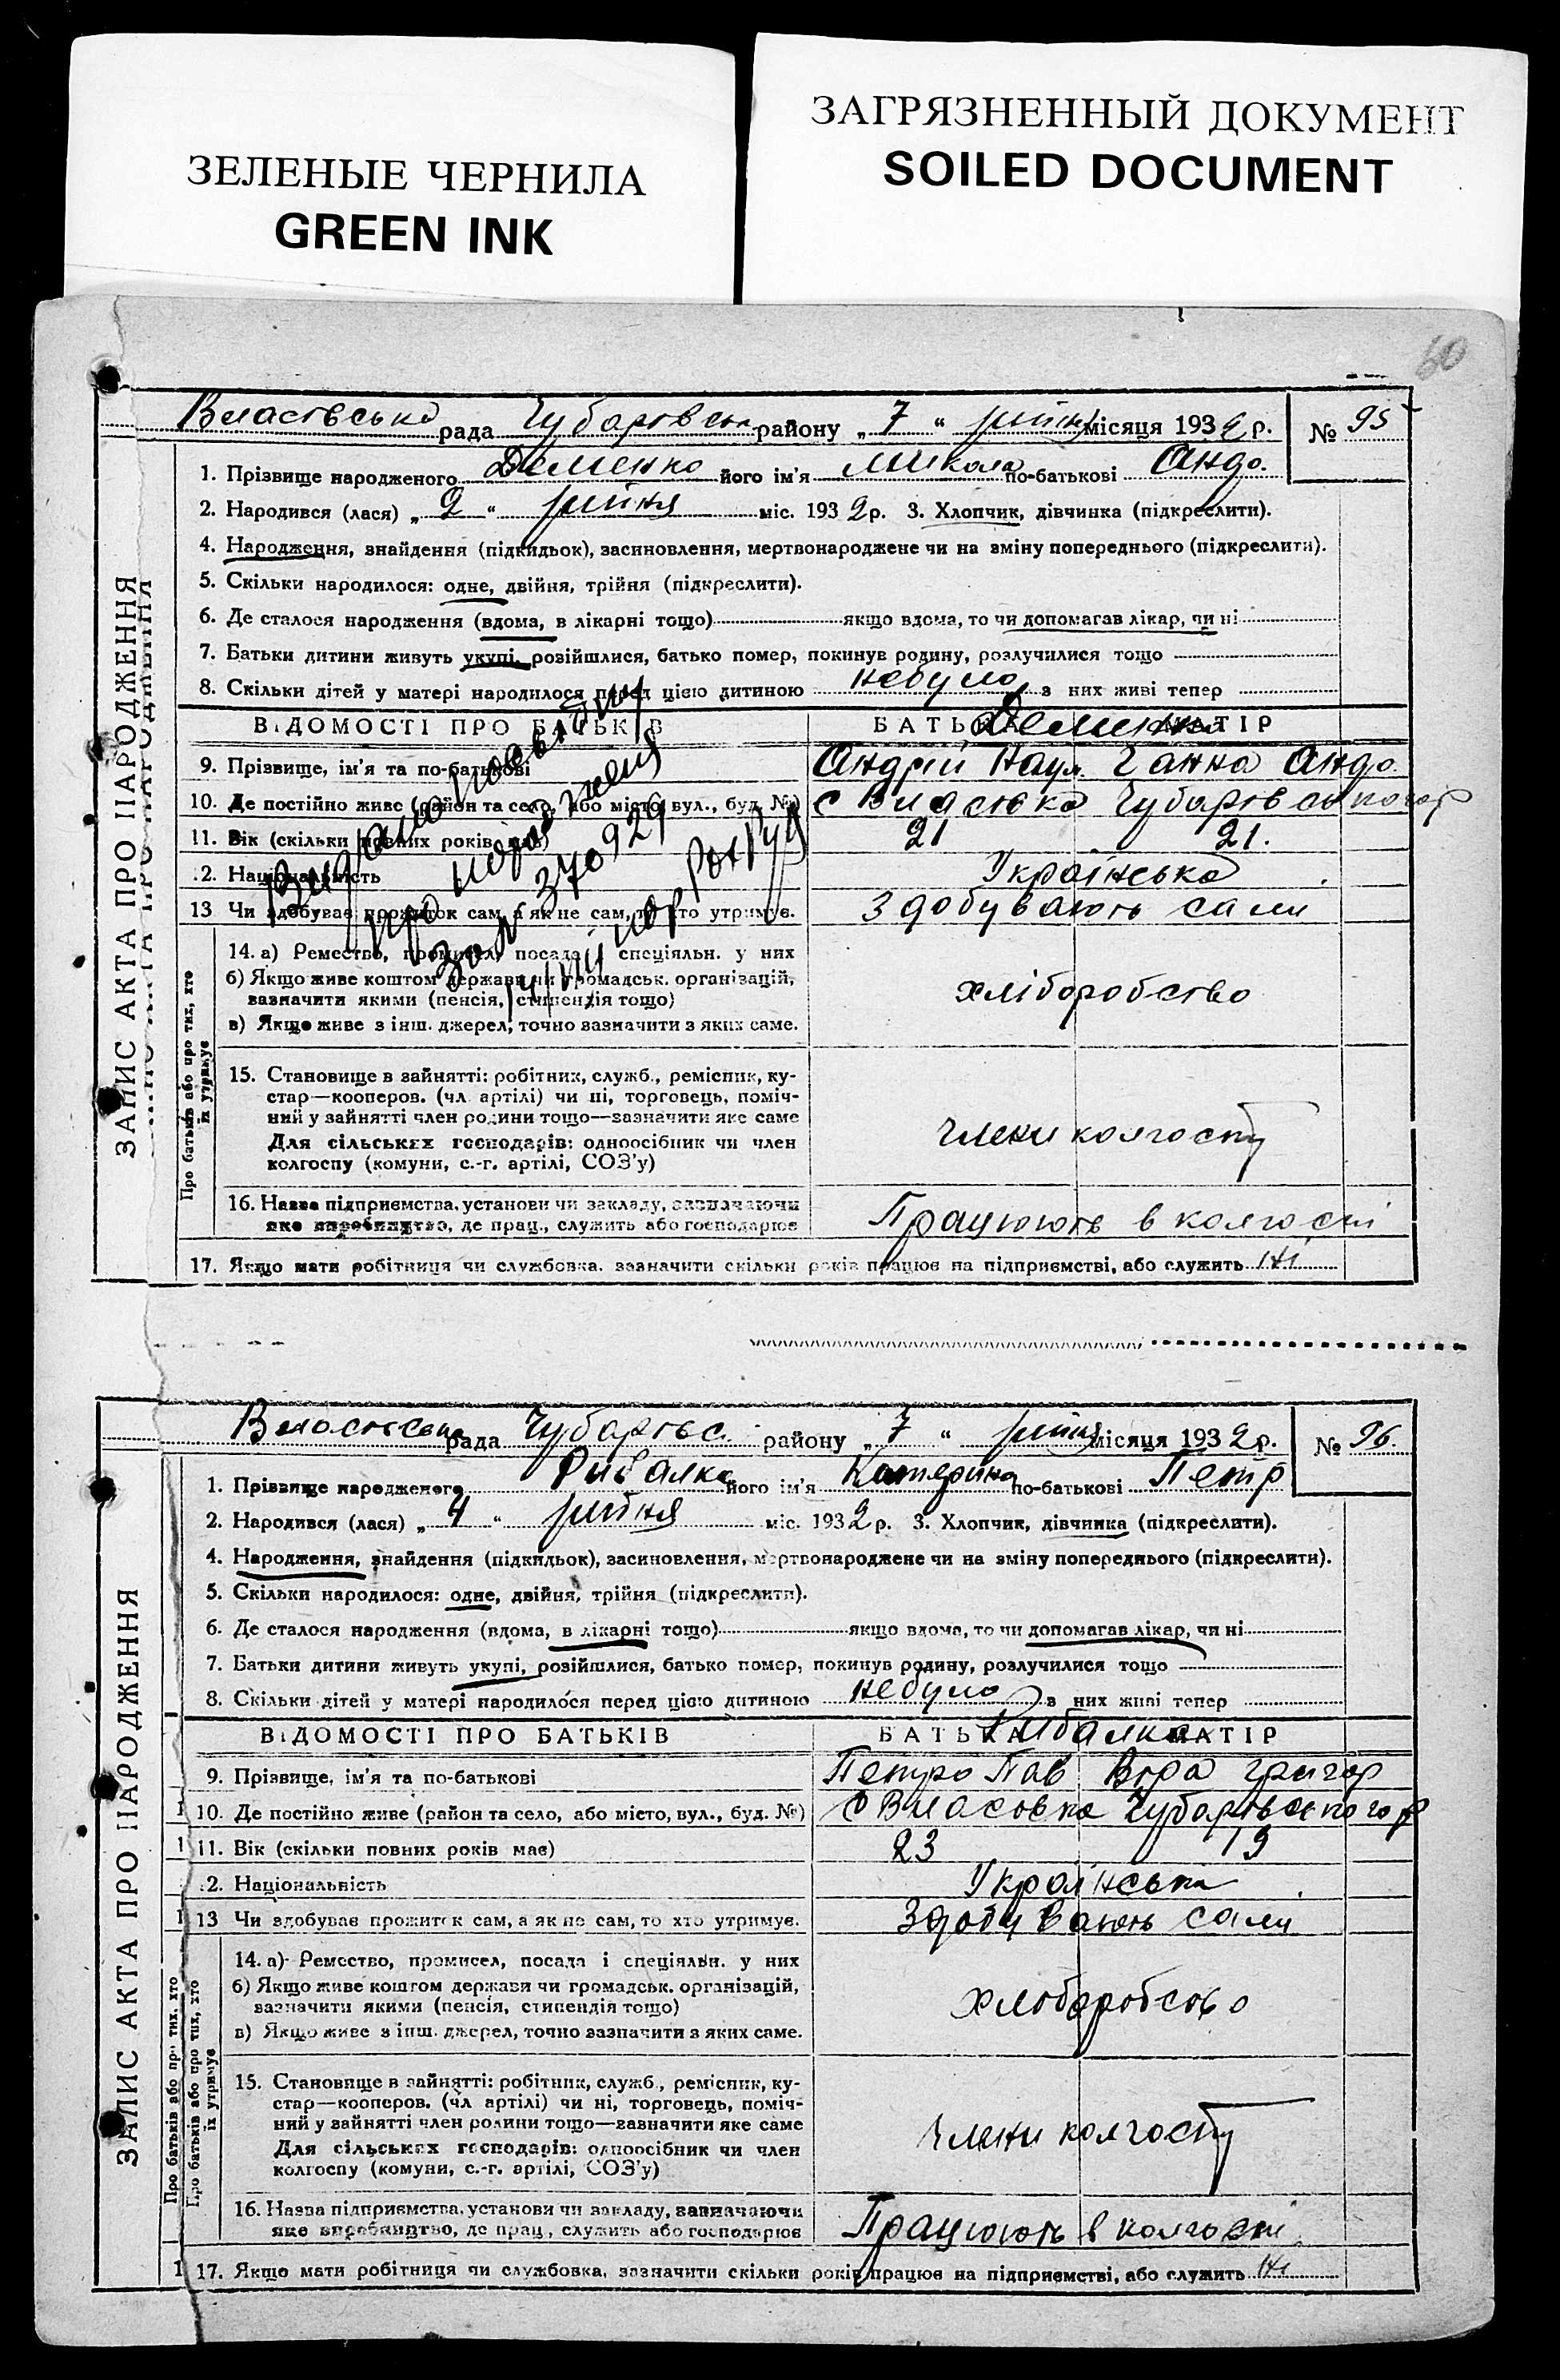 ЗЕЛЕНЫЕ ЧЕРНИЛА
GREEN INK
ЗАГРЯЗНЕННЫЙ ДОКУМЕНТ
SOILED DOCUMENT
60
ЗАПИС АКТА ПРО НАРОДЖЕННЯ
Власівська рада Чубарівськ району „ 7 “ місяця 1932 р. № 95
1. Прізвище народженого Деменко його ім'я Микола по-батькові Андр.
2. Народився (лася) „ 2 “ міс. 1932 р. 3. Хлопчик, дівчинка (підкреслити).
4. Народження, знайдення (підкидьок), засиновлення, мертвонароджене чи на зміну попереднього (підкреслити).
5. Скільки народилося: одне, двійня, трійня (підкреслити).
6. Де сталося народження (вдома, в лікарні тощо) якщо вдома, то чи допомагав лікар, чи ні
7. Батьки дитини живуть укупі, розійшлися, батько помер, покинув родину, розлучилися тощо
8. Скільки дітей у матері народилося перед цією дитиною небуло з них живі тепер
ВІДОМОСТІ ПРО БАТЬКІВ БАТЬКА МАТІР
Деменко
9. Прізвище, ім'я та по-батькові Андрій Наум Ганна Андр.
10. Де постійно живе (район та село, або місто, вул., буд. №) с Власівка Чубарівського р
11. Вік (скільки повних років має) 21 21.
12. Національність Українська
13 Чи здобуває прожиток сам, а як не сам, то хто утримує. Здобувають сами
Про батьків або про тих, хто їх утримує
14. а) Ремество, промисел, посада і спеціяльн. у них
б) Якщо живе коштом держави чи громадськ. організацій,
зазначити якими (пенсія, стипендія тощо)
хліборобство
в) Якщо живе з інш. джерел, точно зазначити з яких саме.
15. Становище в зайнятті: робітник, служб., реміспик, ку-
стар—кооперов. (чл. артілі) чи ні, торговець, поміч-
ний у зайнятті член родини тощо—зазначити яке саме
члени колгоспу
Для сільських господарів: одноосібник чи член
колгоспу (комуни, с.-г. артілі, СОЗ'у)
16. Назва підприємства, установи чи закладу, зазначаючи
яке виробництво, де прац., служить або господарює
Працюють в колгоспі
17. Якщо мати робітниця чи службовка, зазначити скільки років працює на підприємстві, або служить ні
про народження
370929
ЗАПИС АКТА ПРО НАРОДЖЕННЯ
Власівська рада Чубарівс. району „ 7 “ місяця 1932 р. № 96.
1. Прізвище народженого Рибалка його ім'я Катерина по-батькові Петр
2. Народився (лася) „ 4 “ міс. 1932 р. 3. Хлопчик, дівчинка (підкреслити).
4. Народження, знайдення (підкидьок), засиновлення, мертвонароджене чи на зміну попереднього (підкреслити).
5. Скільки народилося: одне, двійня, трійня (підкреслити).
6. Де сталося народження (вдома, в лікарні тощо) якщо вдома, то чи допомагав лікар, чи ні
7. Батьки дитини живуть укупі, розійшлися, батько помер, покинув родину, розлучилися тощо
8. Скільки дітей у матері народилося перед цією дитиною небуло з них живі тепер
ВІДОМОСТІ ПРО БАТЬКІВ БАТЬКА МАТІР
Рибалка
9. Прізвище, ім'я та по-батькові Петро Пав Віра Григор
10. Де постійно живе (район та село, або місто, вул., буд. №) с Власовка Чубарівського р
11. Вік (скільки повних років має) 23 19
12. Національність Українська
13 Чи здобуває прожиток сам, а як не сам, то хто утримує. Здобувають сами
Про батьків або про тих, хто їх утримує
14. а) Ремество, промисел, посада і спеціяльн. у них
б) Якщо живе коштом держави чи громадськ. організацій,
зазначити якими (пенсія, стипендія тощо)
хліборобство
в) Якщо живе з інш. джерел, точно зазначити з яких саме.
15. Становище в зайнятті: робітник, служб., ремісник, ку-
стар—кооперов. (чл артілі) чи ні, торговець, поміч-
ний у зайнятті член родини тощо—зазначити яке саме
члени колгоспу
Для сільських господарів: одноосібник чи член
колгоспу (комуни, с.-г. артілі, СОЗ'у)
16. Назва підприємства, установи чи закладу, зазначаючи
яке виробництво, де прац., служить або господарює
Працюють в колгоспі
17. Якщо мати робітниця чи службовка, зазначити скільки років працює на підприємстві, або служить ні